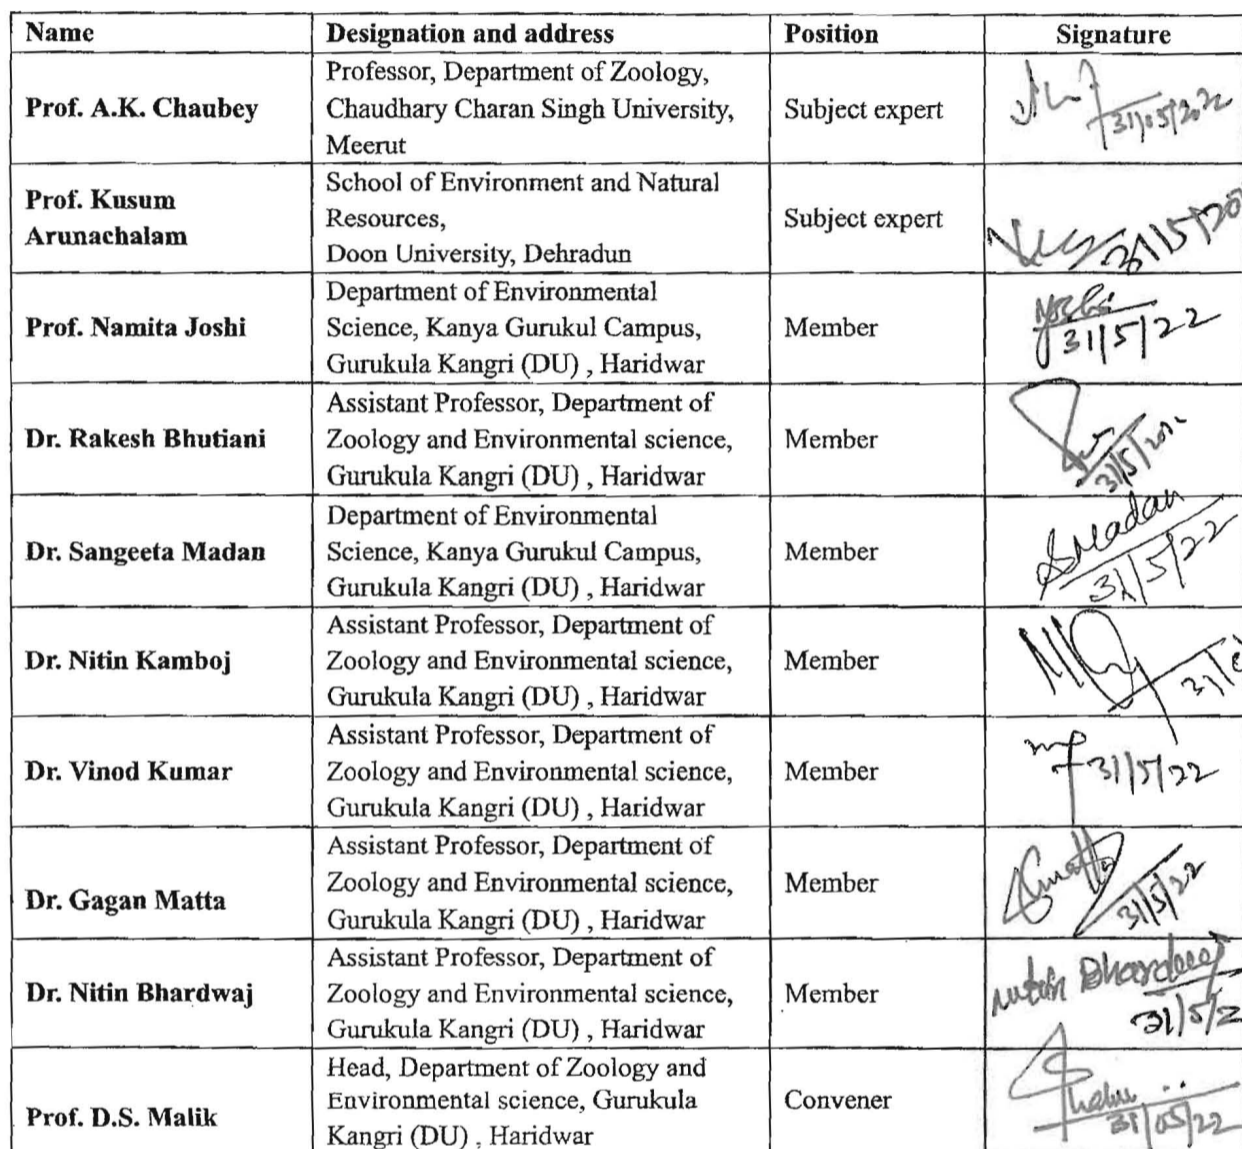 Name Designation and address Position Signature
Prof. A.K. Chaubey
Professor, Department of Zoology,
Chaudhary Charan Singh University,
Meerut
Subject expert
31/05/2022
Prof. Kusum
Arunachalam
School of Environment and Natural
Resources,
Doon University, Dehradun
Subject expert
31/5/20
Prof. Namita Joshi
Department of Environmental
Science, Kanya Gurukul Campus,
Gurukula Kangri (DU) , Haridwar
Member
31/5/22
Dr. Rakesh Bhutiani
Assistant Professor, Department of
Zoology and Environmental science,
Gurukula Kangri (DU) , Haridwar
Member
31/5/2022
Dr. Sangeeta Madan
Department of Environmental
Science, Kanya Gurukul Campus,
Gurukula Kangri (DU) , Haridwar
Member
SMadan
31/5/22
Dr. Nitin Kamboj
Assistant Professor, Department of
Zoology and Environmental science,
Gurukula Kangri (DU) , Haridwar
Member
Dr. Vinod Kumar
Assistant Professor, Department of
Zoology and Environmental science,
Gurukula Kangri (DU) , Haridwar
Member
31/5/22
Dr. Gagan Matta
Assistant Professor, Department of
Zoology and Environmental science,
Gurukula Kangri (DU) , Haridwar
Member
31/5/22
Dr. Nitin Bhardwaj
Assistant Professor, Department of
Zoology and Environmental science,
Gurukula Kangri (DU) , Haridwar
Member
Nitin Bhardwaj
31/5/2
Prof. D.S. Malik
Head, Department of Zoology and
Environmental science, Gurukula
Kangri (DU) , Haridwar
Convener
31/05/22